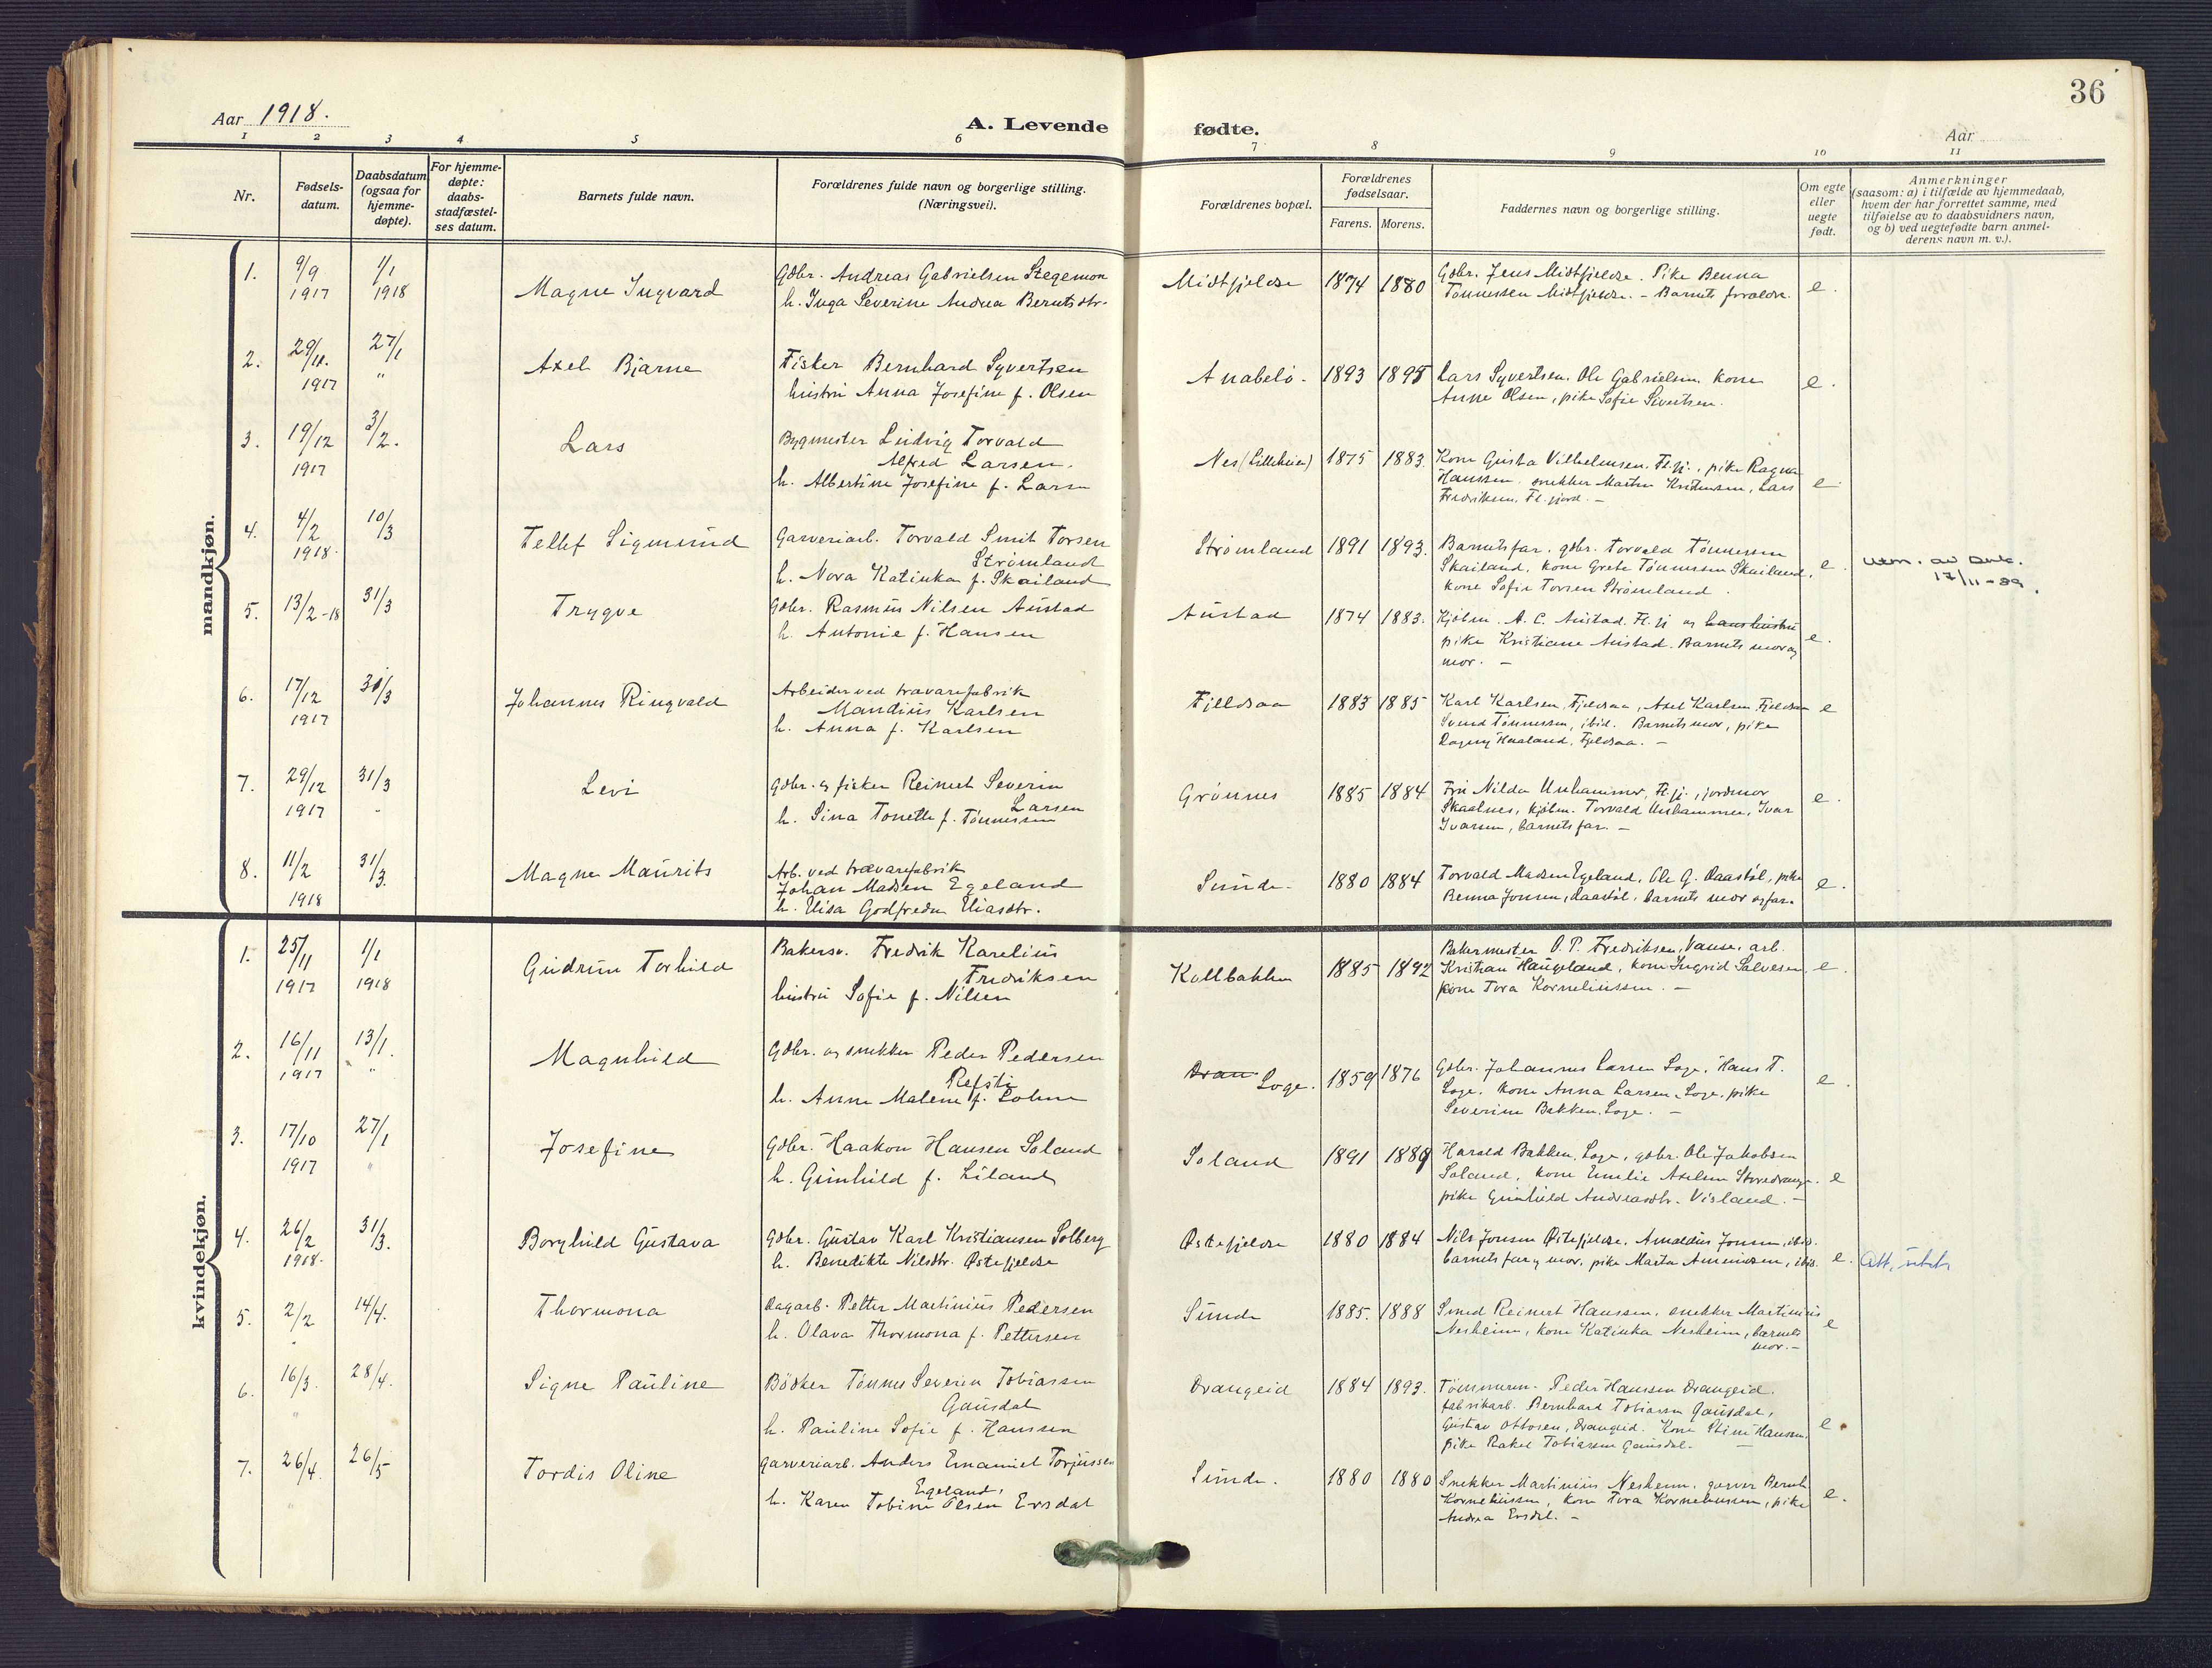 36
Aar 1918.
A. Levende fødte.
Aar
1 2 3 4 5 6 7 8 9 10 11
Nr.
Fødsels-
datum.
Daabsdatum
(ogsaa for
hjemme-
døpte).
For hjemme-
døpte:
daabs-
stadfæstel-
ses datum.
Barnets fulde navn.
Forældrenes fulde navn og borgerlige stilling.
(Næringsvei).
Forældrenes bopæl.
Forældrenes
fødselsaar.
Farens. Morens.
Faddernes navn og borgerlige stilling.
Om egte
eller
uegte
født.
Anmerkninger
(saasom: a) i tilfælde av hjemmedaab,
hvem der har forrettet samme, med
tilføielse av to daabsvidners navn,
og b) ved uegtefødte barn anmel-
derens navn m. v.).
mandkjøn.
1. 9/9 1917 1/1 1918 Magne Ingvard
Gdbr. Andreas Gabrielsen Stegemon
h. Inga Severine Andrea Berntsdtr.
Midtfjeldse 1874 1880
Gdbr. Jens Midtfjeldse. Pike Benna
Tønnessen Midtfjeldse. - Barnets forældre.
e.
2. 29/11. 1917 27/1 " Axel Bjarne
Fisker Bernhard Syvertsen
hustru Anna Josefine f. Olsen
Anabelø. 1893 1895
Lars Syvertsen. Ole Gabrielsen. Kone
Anne Olsen, pike Sofie Sivertsen.
e.
3. 19/12 1917 3/2. Lars
Bygmester Ludvig Torvald
Alfred Larsen.
h. Albertine Josefine f. Larsen
Nes (Lilleheien) 1875 1883.
Kone Gusta Vilhelmsen. Fl.fj., pike Ragna
Hanssen. snekker Martin Kristensen, Lars
Fredriksen, Fl. fjord. -
e.
4. 4/2 1918. 10/3 Tellef Sigmund
Garveriarb. Torvald Smit Torsen
Strømland
h. Nora Katinka f. Skailand
Strømland 1891 1893.
Barnets far. gdbr. Torvald Tønnessen
Skailand, kone Grete Tønnessen Skailand,
kone Sofie Torsen Strømland.
e.
av
17/11-39.
5. 13/2-18 31/3 Trygve
Gdbr. Rasmus Nilsen Austad
h. Antonie f. Hansen
Austad 1874 1883.
Kjøbm. A. C. Austad. Fl.fj og hans hustru
pike Kristiane Austad. Barnets mor og
mor. -
e.
6. 17/12 1917 31/3 Johannes Ringvald
Arbeider ved trævarefabrik
Mandius Karlsen
h. Anna f. Karlsen
Fjeldsaa 1883 1885
Karl Karlsen, Fjeldsaa, Axel Karlsen Fjeldsaa
Svend Tønnessen, ibid. Barnets mor, pike
Dagny Haaland, Fjeldsaa. -
e
7. 29/12 1917 31/3 " Levi
Gdbr. og fisker Reinert Severin
Larsen
h. Sina Tonette f. Tønnessen
Grønnes 1885 1884
Fru Nilda Unhammer, Fl.fj., jordmor
Skaalnes, kjøbm. Torvald Unhammer, Ivar
Ivarsen, barnets far. -
e.
8. 11/2 1918 31/3. Magne Maurits
Arb. ved trævarefabrik
Johan Madsen Egeland
h. Elisa Godfreda Eliasdtr.
Sunde. 1880 1884
Torvald Madsen Egeland, Ole G. Daastøl, pike
Benna Jonsen, Daastøl, barnets mor og far.
e.
kvindekjøn.
1. 25/11 1917 1/1 1918 Gudrun Torhild
Bakersv. Fredrik Karelius
Fredriksen
hustru Sofie f. Nilsen
Kollbakken 1885 1892
Bakermester O. P. Fredriksen, Vanse, arb.
Kristian Haugeland, kone Ingrid Salvesen,
kone Tora Korneliussen. -
e.
2. 16/11 1917 13/1. " Magnhild
Gdbr. og snekker Peder Pedersen
Refsti
h. Anne Malene f. Lohne
Dran Loge. 1859 1876
Gdbr. Johannes Larsen Loge, Hans T.
Loge, Kone Anna Larsen Loge, pike
Severine Bakken, Loge. -
e.
3. 17/10 1917 27/1 " Josefine
Gdbr. Haakon Hansen Soland
h. Gunhild f. Liland
Soland 1891 1889
Harald Bakken Loge, gdbr. Ole Jakobsen
Soland, kone Emilie Axelsen
pike Gunhild Andreasdtr. Visland. -
e
4. 26/2 1918. 31/3. Borghild Gustava
Gdbr. Gustav Karl Kristiansen Solberg
h. Benedikte Nilsdtr. Østefjeldse
Østefjeldse 1880 1884
Nils Jonsen Østefjeldse. Arnoldus Jonsen, ibid.
barnets far og mor, pike Marta Amundsen, ibid.
e.
Att. utst.
5. 2/2 " 14/4. Thormona
Dagarb. Petter Martinius Pedersen
h. Olava Thormona f. Pettersen
Sunde 1885. 1888
Smed Reinert Hanssen, snekker Martinius
Nesheim, kone Katinka Nesheim, barnets
mor. -
e
6. 16/3. " 28/4. Signe Pauline
Bødker Tønnes Severin Tobiassen
Gausdal
h. Pauline Sofie f. Hanssen
Drangeid 1884 1893.
Tømmerm. Peder Hanssen Drangeid.
fabrikarb. Bernhard Tobiassen Gausdal,
Gustav Ottosen, Drangeid. Kone Stine Hansen,
pike Rakel Tobiassen Gausdal. -
e
7. 26/4. " 26/5 Tordis Oline
Garveriarb. Anders Emanuel Torjussen
Egeland.
h. Karen Tobine Olsen Ersdal
Sunde. 1880 1880
Snekker Martinius Nesheim, garver Bernt
Korneliussen, kone Tora Korneliussen, pike
Andrea Ersdal. -
e.